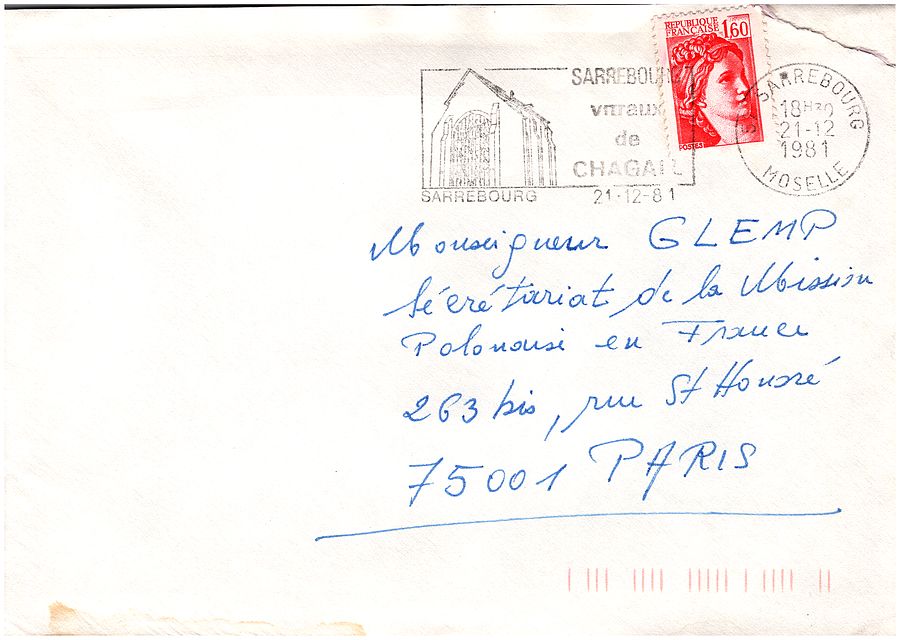 REPUBLIQUE
FRANCAISE 1,60
POSTES
SARREBOURG
vitraux
de
CHAGALL
SARREBOURG
21-12-81
57 SARREBOURG
18H30
21-12
1981
MOSELLE
Monseigneur GLEMP
Sécrétariat de la Mission
Polonaise en France
263 bis, rue St Honoré
75001 PARIS